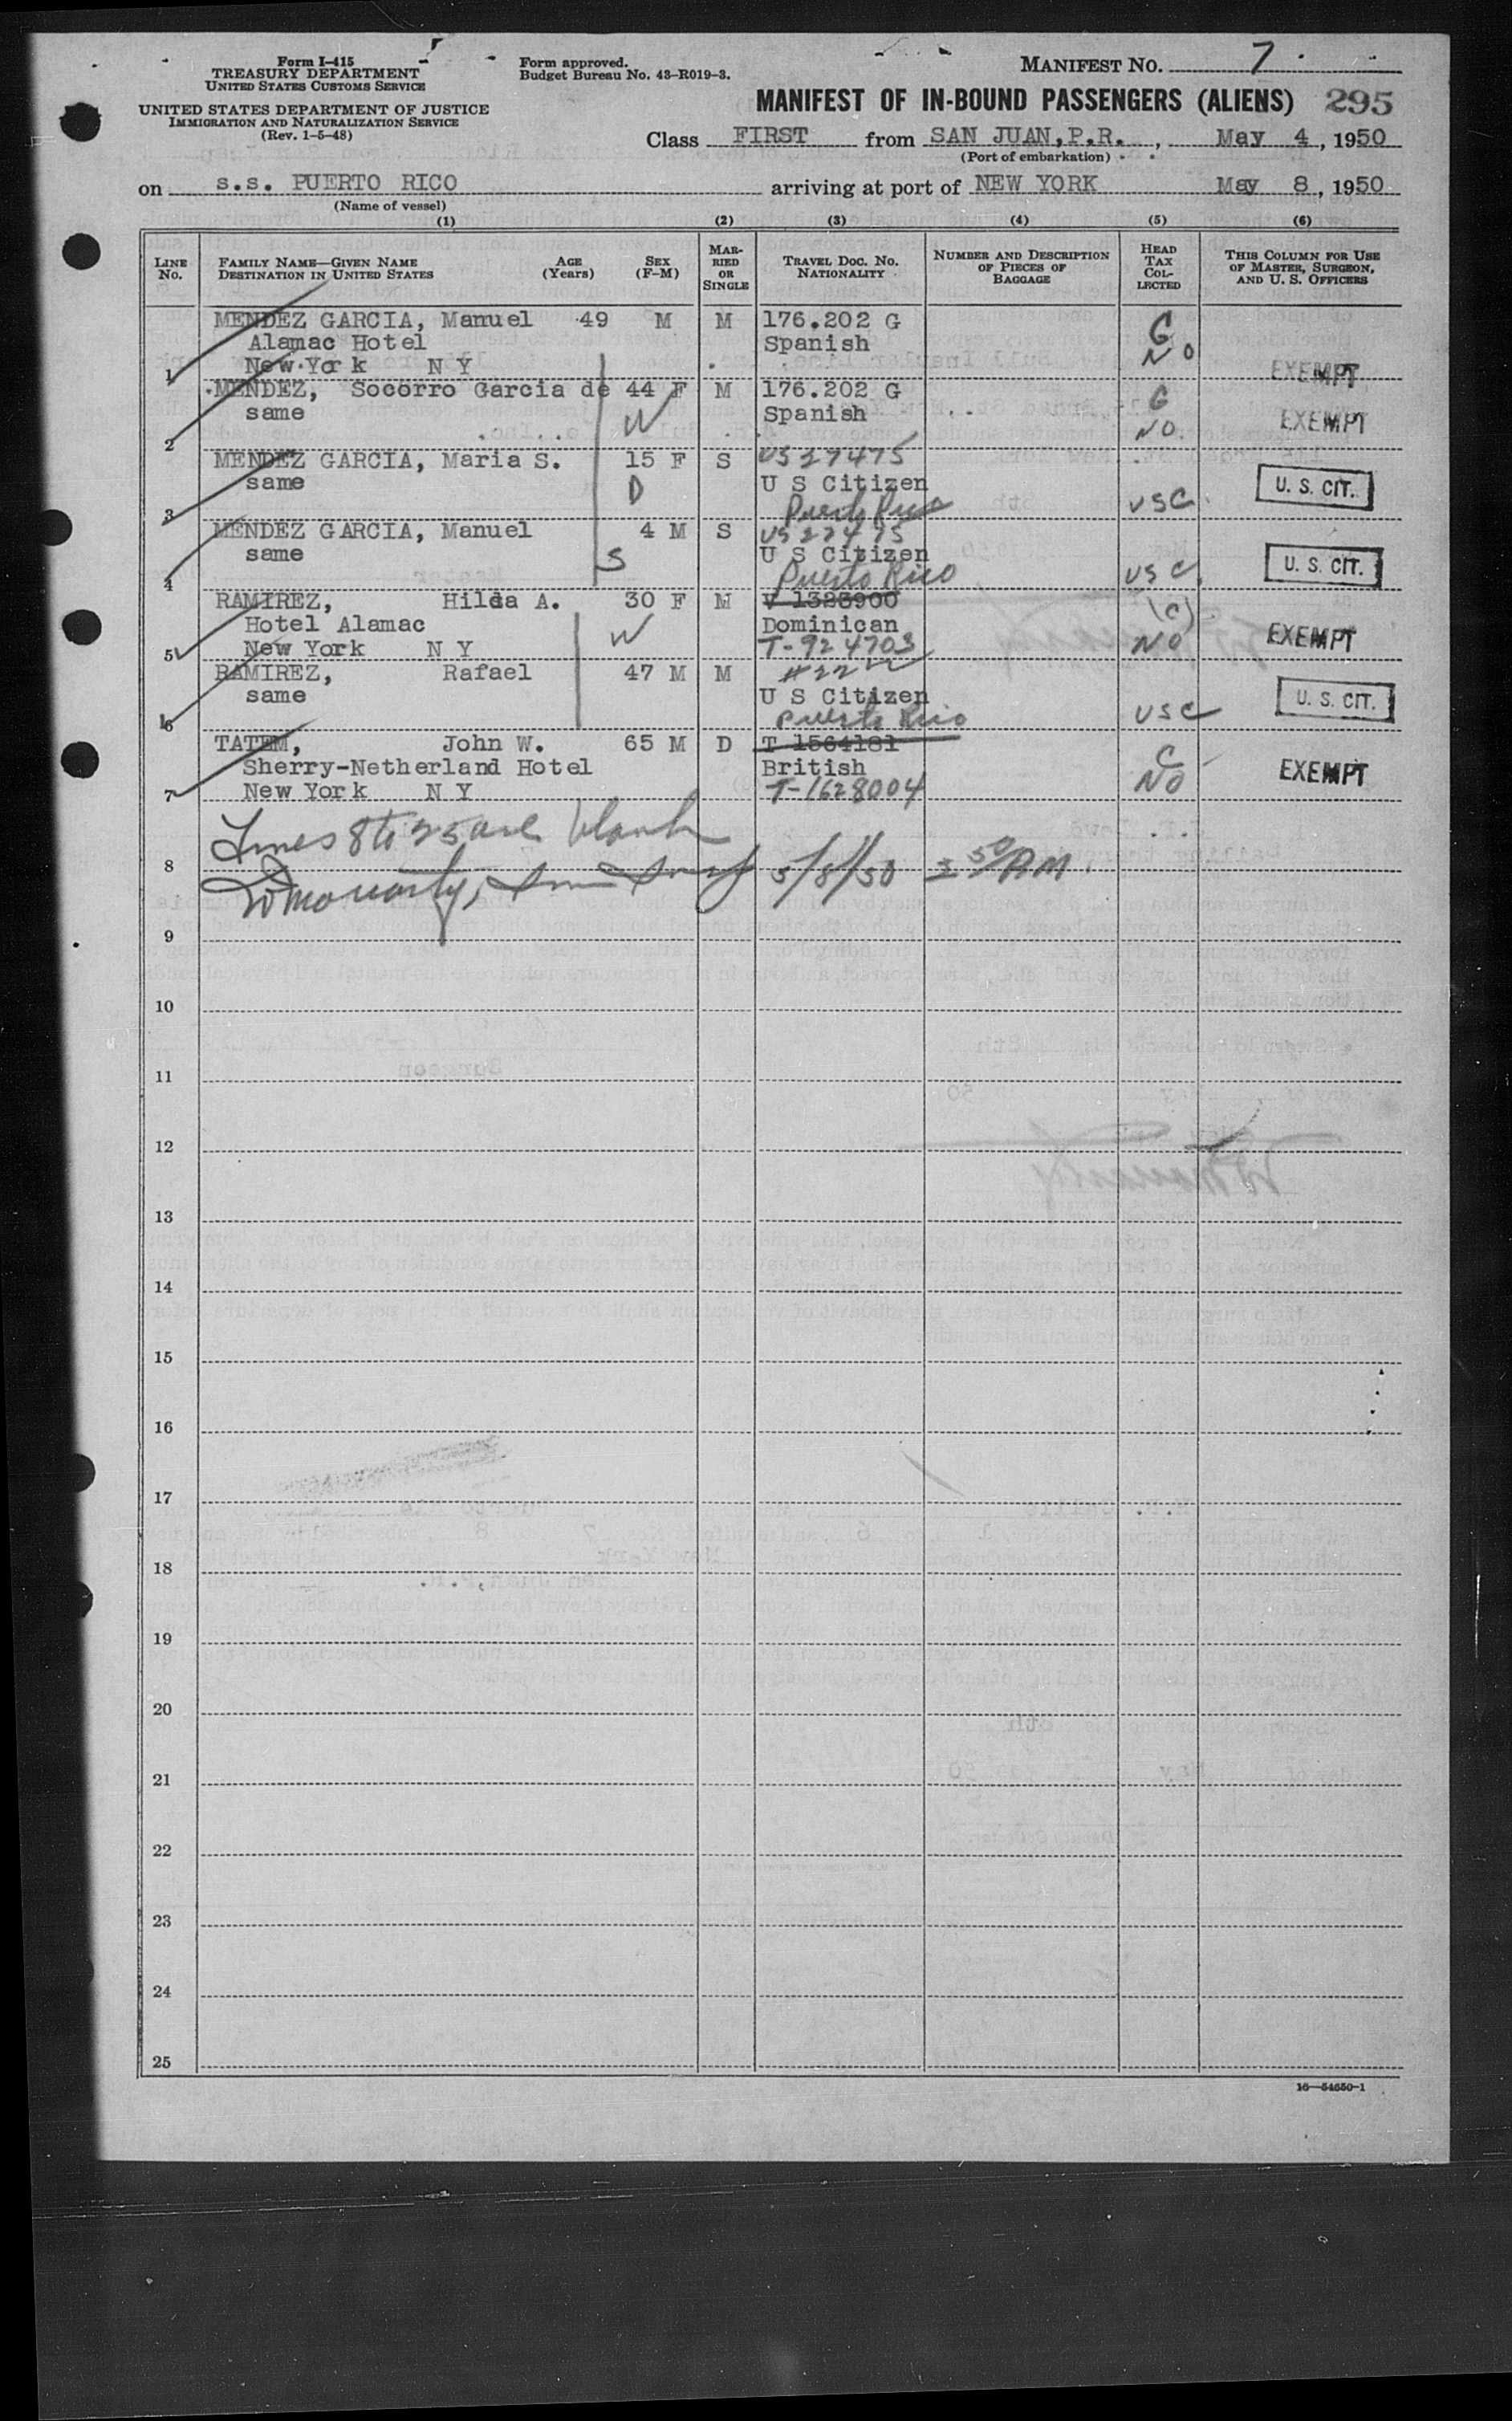 Form I-415
TREASURY DEPARTMENT
UNITED STATES CUSTOMS SERVICE
UNITED STATES DEPARTMENT OF JUSTICE
IMMIGRATION AND NATURALIZATION SERVICE
(Rev. 1-5-48)
Form approved.
Budget Bureau No. 43-R019-3.
MANIFEST NO. 7
MANIFEST OF IN-BOUND PASSENGERS (ALIENS) 295
Class FIRST from SAN JUAN,P.R., May 4, 1950
(Port of embarkation)
on s.s. PUERTO RICO arriving at port of NEW YORK May 8, 1950
(Name of vessel)
(1) (2) (3) (4) (5) (6)
LINE No.
FAMILY NAME—GIVEN NAME
DESTINATION IN UNITED STATES
AGE (Years)
SEX (F-M)
MARRIED OR SINGLE
TRAVEL DOC. NO.
NATIONALITY
NUMBER AND DESCRIPTION OF PIECES OF BAGGAGE
HEAD TAX COLLECTED
THIS COLUMN FOR USE OF MASTER, SURGEON, AND U. S. OFFICERS
MENDEZ GARCIA, Manuel 49 M M 176.202 G G
Alamac Hotel Spanish
1 New York N Y NO EXEMPT
MENDEZ, Socorro Garcia de 44 F M 176.202 G G
same W Spanish EXEMPT
2 NO.
MENDEZ GARCIA, Maria S. 15 F S US 27475
same D U S Citizen U. S. CIT.
3 Puerto Rico USC
MENDEZ GARCIA, Manuel 4 M S US 27475
same S U S Citizen U. S. CIT.
4 Puerto Rico USC
RAMIREZ, Hilda A. 30 F M V 1326900 (C)
Hotel Alamac W Dominican
5 New York N Y T-924703 NO EXEMPT
RAMIREZ, Rafael 47 M M #22
same U S Citizen U. S. CIT.
6 Puerto Rico USC
TATEM, John W. 65 M D T 1564181 C
Sherry-Netherland Hotel British EXEMPT
7 New York N Y T-1628004 NO
Lines 8 to 25 are blank
8 5/8/50 3 50 PM.
9
10
11
12
13
14
15
16
17
18
19
20
21
22
23
24
25
16—54650-1